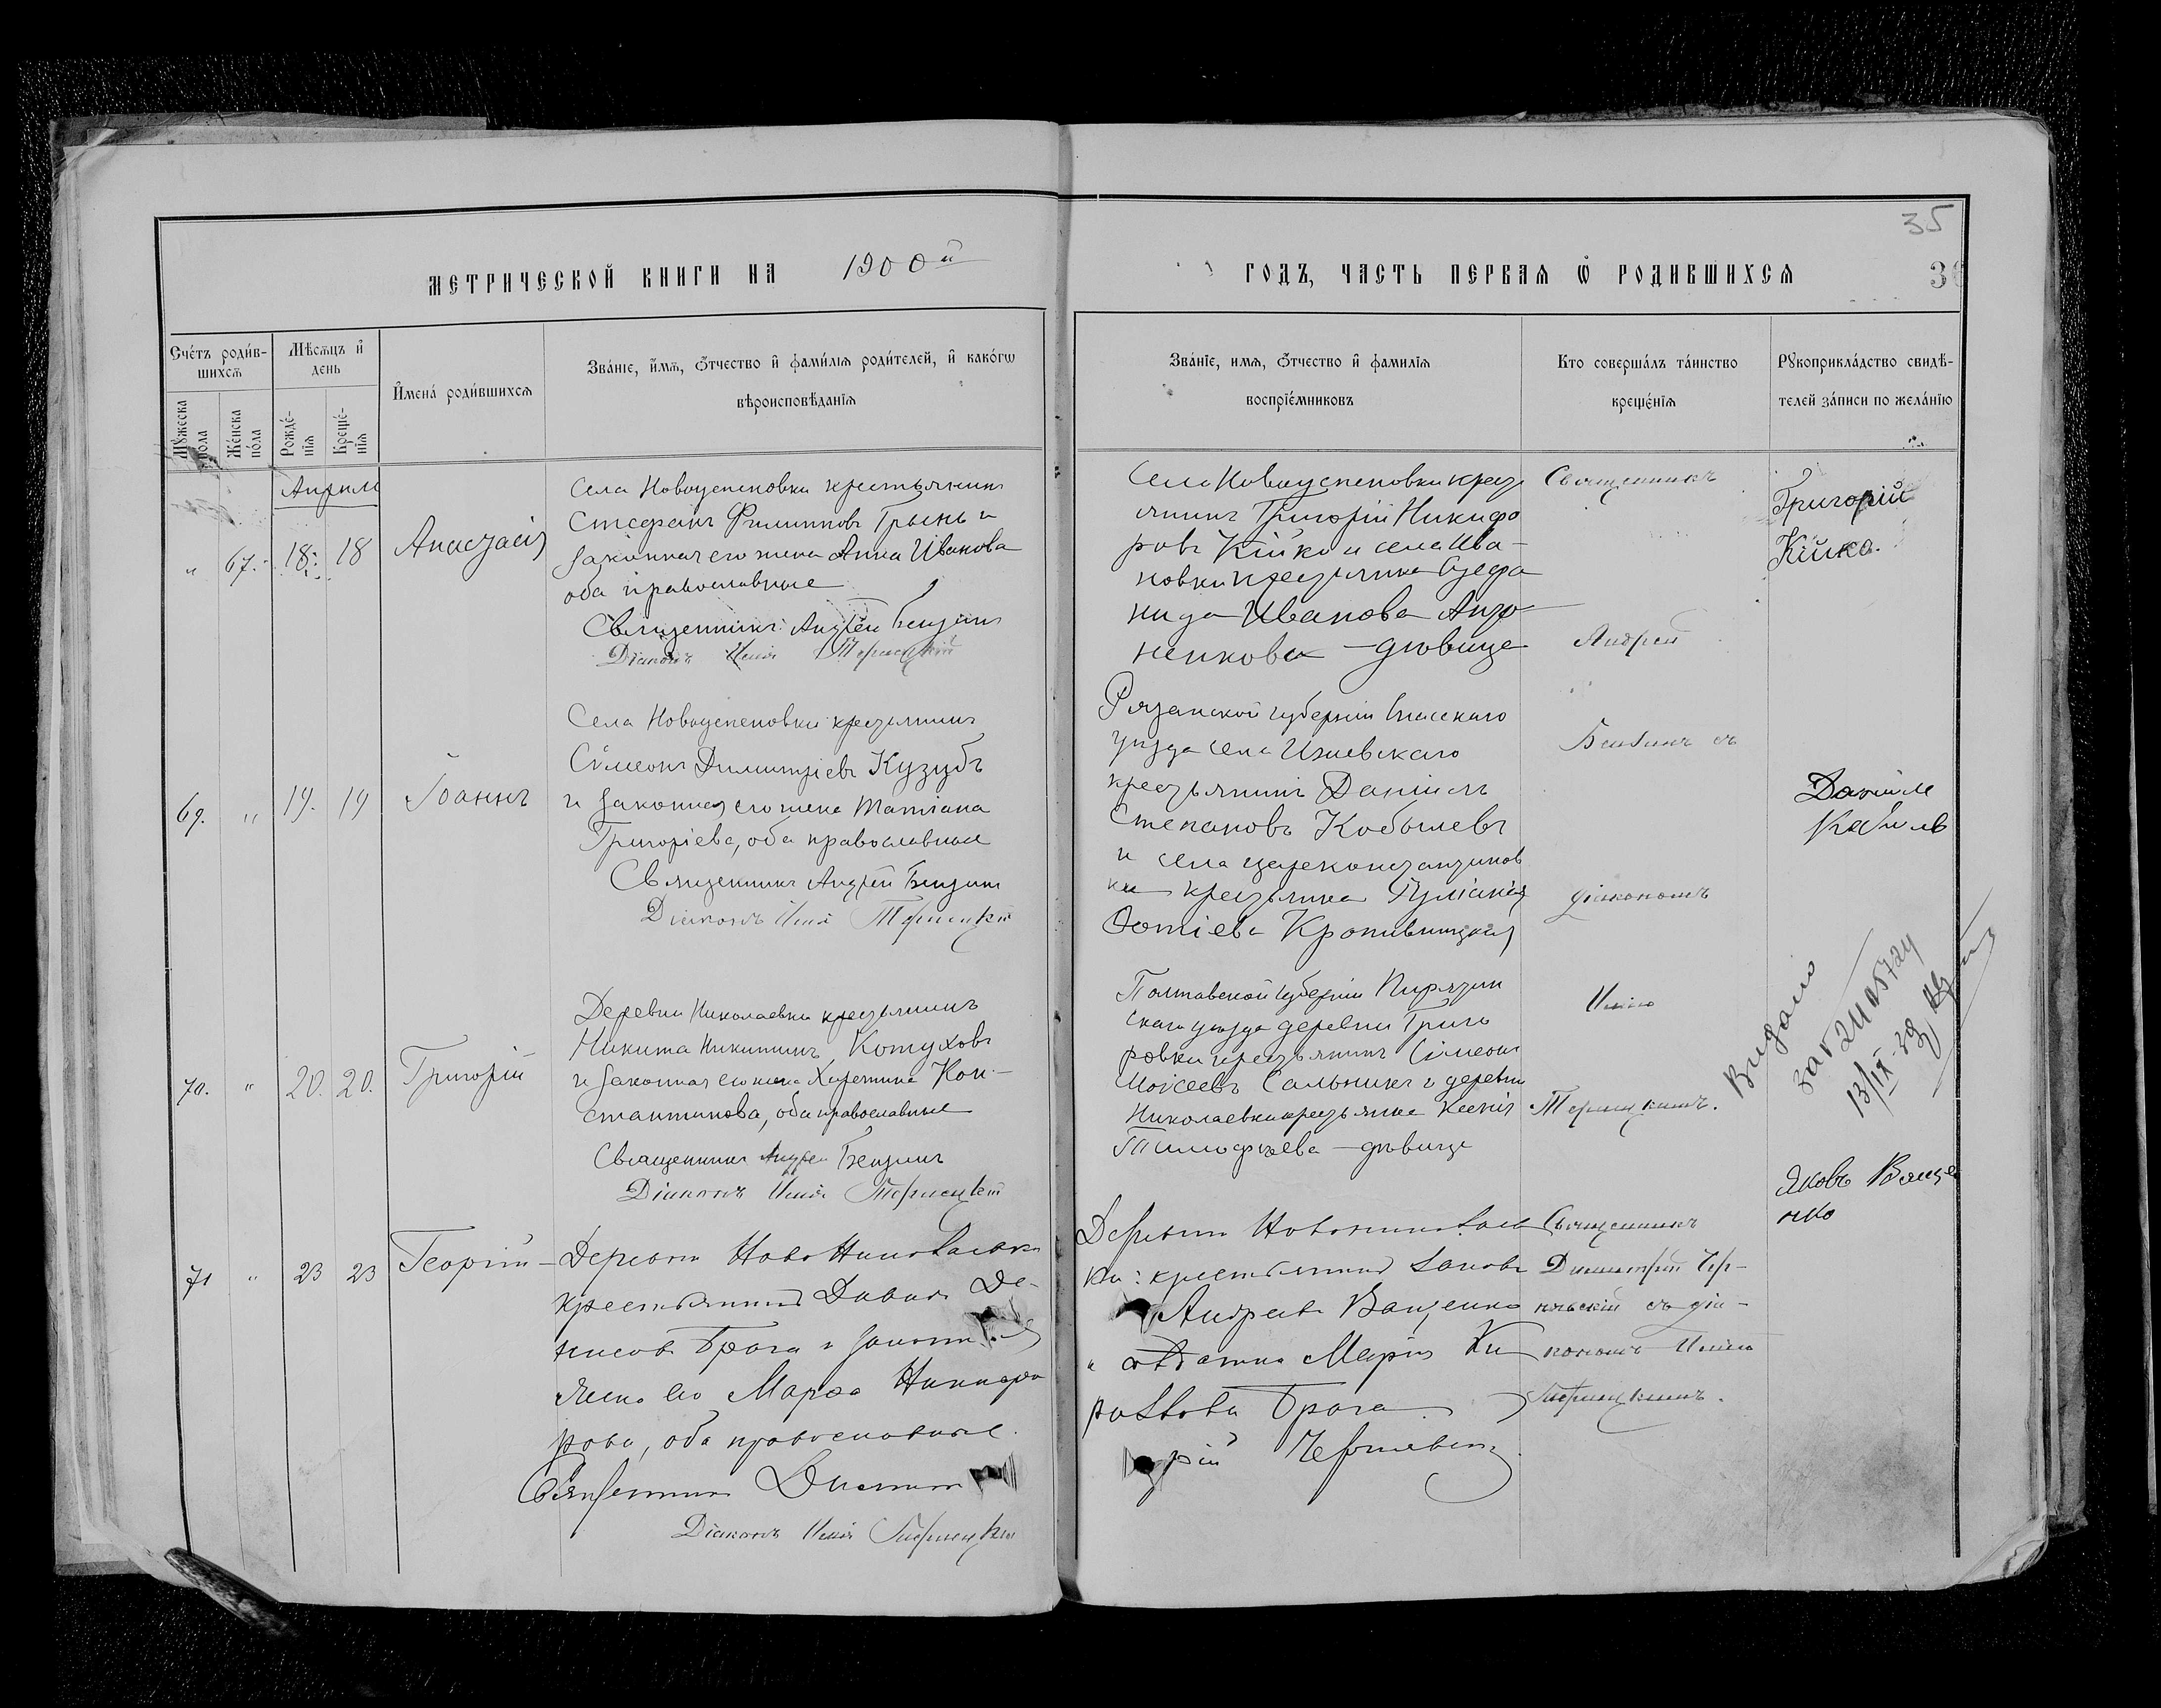 35
МЕТРИЧЕСКОЙ КНИГИ НА 1900й
ГОДЪ, ЧАСТЬ ПЕРВАЯ Ѿ РОДИВШИХСЯ
Счётъ родив-
шихсѧ
Мѣсѧцъ и
день
Мужеска
пола
Женска
пола
Рожде-
нїѧ
Креще-
нїѧ
Имена родившихсѧ
Званїе, имѧ, ѻтчество и фамилїѧ родителей, и какогѡ
вѣроисповѣданїѧ
Званїе, имѧ, ѻтчество и фамилїѧ
воспрїемниковъ
Кто совершалъ таинство
крещенїѧ
Рукоприкладство свидѣ-
телей записи по желанїю
Апрѣль
" 67. 18. 18
Анастасія
Села Новоуспеновки крестьянинъ
Стефанъ Филипповъ Грынь и
законная его жена Анна Иванова
оба православные
Священникъ Андрей Бензинъ
Діаконъ Илія
Села Новоуспеновки крест
янинъ Григорій Никифо
ровъ Кійко и села Ива-
новки крестьянка Стефа
нида Иванова Анто
ненкова - дѣвица
Священникъ
Андрей
Григорій
Кійко.
69. " 19. 19
Іоаннъ
Села Новоуспеновки крестьянинъ
Сѵмеонъ Димитріевъ Кузубъ
и законная его жена Татіана
Григоріева, оба православные
Священникъ Андрей Бензинъ
Діаконъ Илія
Рязанской губерніи Спасскаго
уѣзда села Ижевскаго
крестьянинъ Даніилъ
Степановъ Кобылевъ
и села Цареконстантинов
ки крестьянка Іуліанія
Фотіева Кропивницкая
Бензинъ съ
діакономъ
Даніилъ
70. " 20. 20.
Григорій
Деревни Николаевки крестьянинъ
Никита Никитинъ Котуховъ
и законная его жена Харитина Кон-
стантинова, оба православные
Священникъ Андрей Бензинъ
Діаконъ Илія
Полтавской губерніи Пирятин
скаго уѣзда деревни Григо
ровки крестьянинъ Сѵмеонъ
Моисеевъ Сальникъ и деревни
Николаевки крестьянка Ксенія
Тимофѣева - дѣвица
Иліею
Видано
13/IX-39
71 " 23 23
Георгій
Деревни Ново Николаевки
крестьянинъ Давидъ Де-
нисовъ Брага и законная
жена его Марфа Никифо
рова, оба православные.
Священникъ Димит
Діаконъ Илія
Деревни Новониколаев
ки: крестьянинъ Іаковъ
Андреевъ Ващенко
и дѣвица Марія Ки
рилова Брага
рій
Священникъ
Димитрій Чер-
съ діа-
кономъ Иліею
Яковъ Ваще
нко